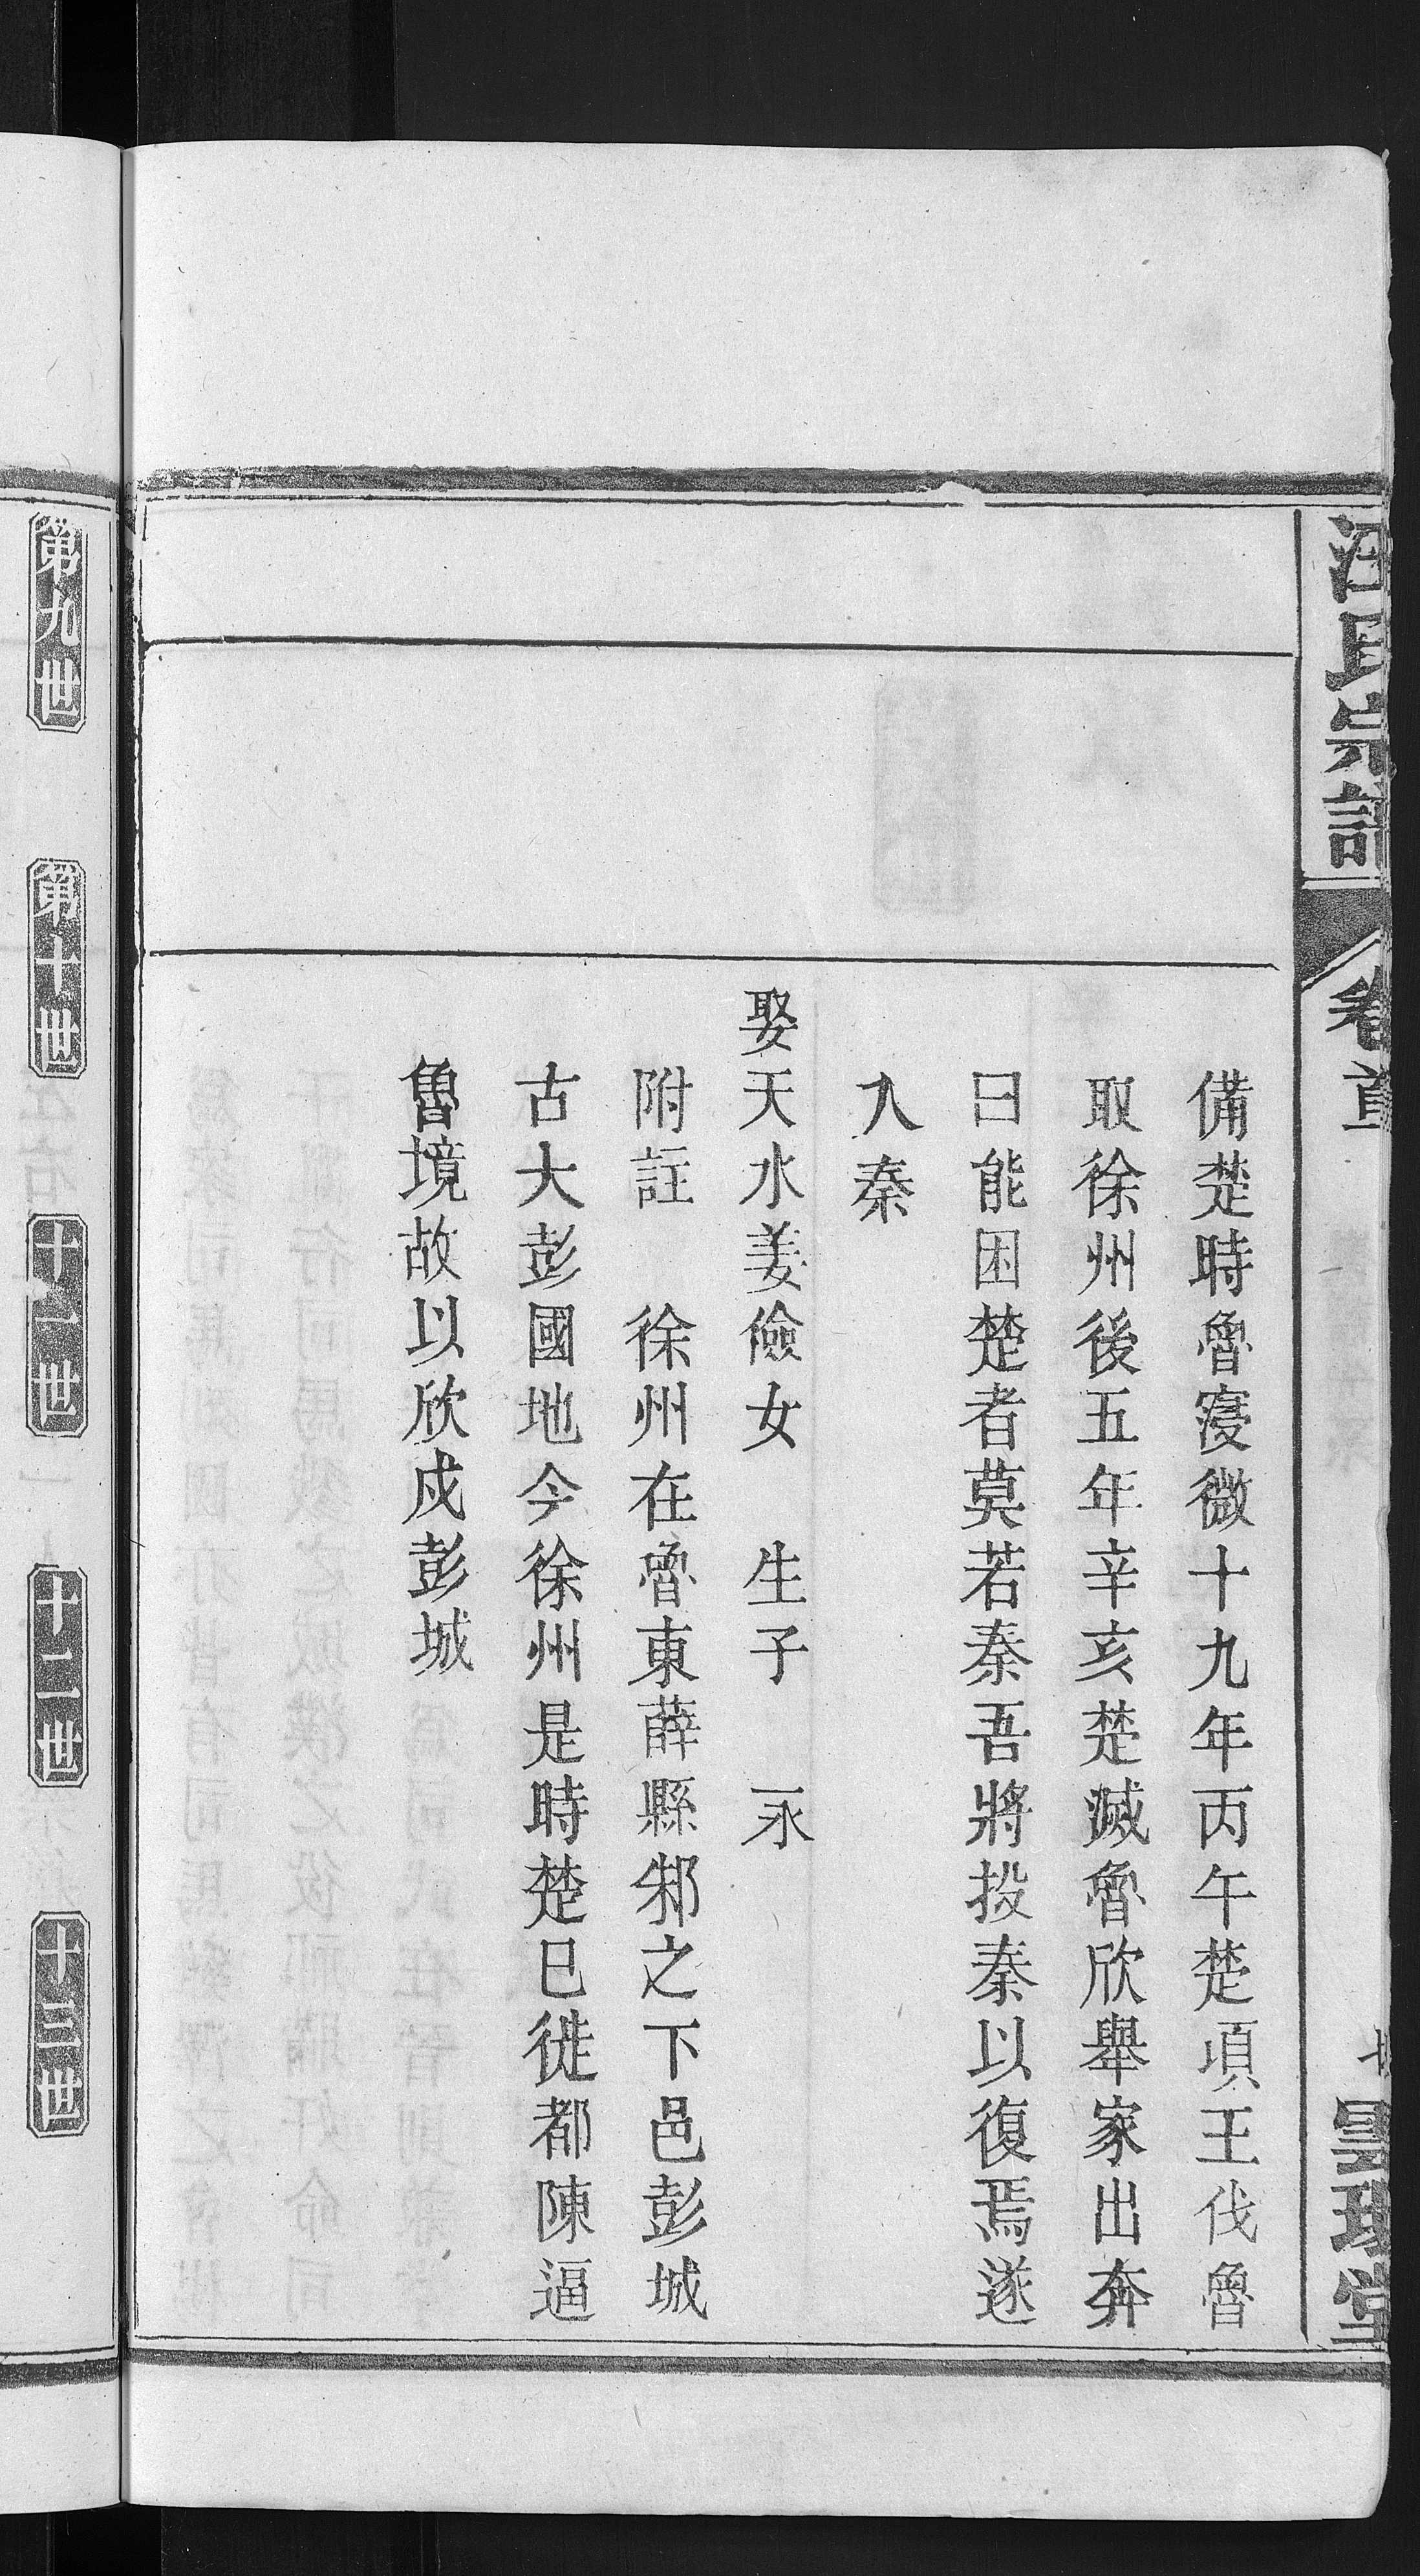 汪氏宗譜
卷首
堂
備楚時魯寖微十九年丙午楚頃王伐魯
取徐州後五年辛亥楚滅魯欣舉家出奔
曰能困楚者莫若秦吾將投秦以復焉遂
入秦
娶天水姜儉女　生子　永
附註　徐州在魯東薛縣邾之下邑彭城
古大彭國地今徐州是時楚巳徙都陳逼
魯境故以欣戍彭城
第九世
第十世
十一世
十二世
十三世